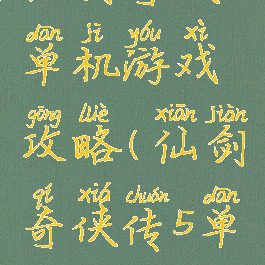 dān jī yóu xì
单机游戏
gōng lüè xiān jiàn
攻略(仙剑
qí xiá chuán dān
奇侠传5单